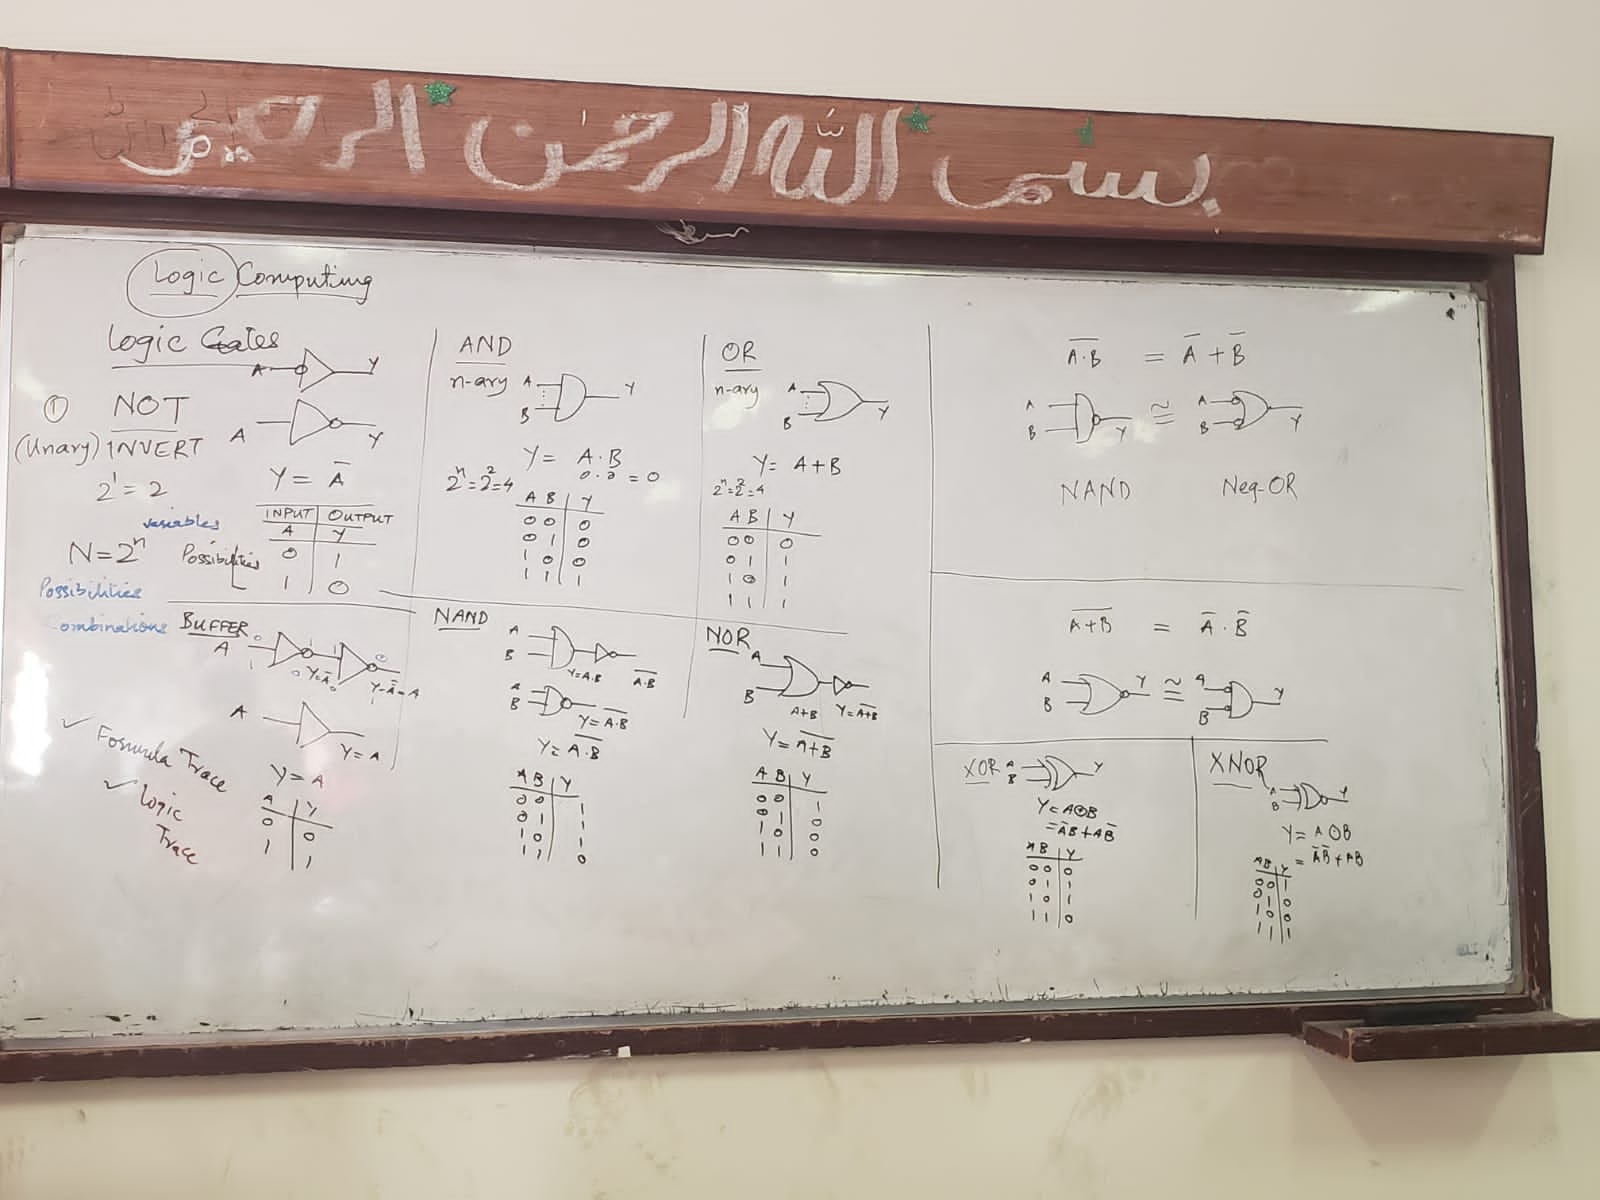 بسم الله الرحمن الرحيم
Logic Computing
Logic Gates
A Y
① NOT
(Unary) INVERT
A Y
2¹ = 2
Y = A̅
INPUT OUTPUT
A Y
0 1
1 0
variables
N = 2ⁿ Possibilities
Possibilities
Combinations
BUFFER
A 0 1 Y=A̅ 0 1 Y=A̿=A
A Y=A
Y = A
A Y
0 0
1 1
✓ Formula Trace
✓ Logic
Trace
AND
n-ary A B Y
Y = A·B
2ⁿ=2²=4 0·0 = 0
A B Y
0 0 0
0 1 0
1 0 0
1 1 1
NAND
A
B Y=A·B \overline{A·B}
A
B Y=\overline{A·B}
Y = \overline{A·B}
A B Y
0 0 1
0 1 1
1 0 1
1 1 0
OR
n-ary A B Y
Y = A+B
2ⁿ=2²=4
A B Y
0 0 0
0 1 1
1 0 1
1 1 1
NOR
A
B A+B Y=\overline{A+B}
Y = \overline{A+B}
A B Y
0 0 1
0 1 0
1 0 0
1 1 0
\overline{A·B} = A̅ + B̅
A B Y ≅ A B Y
NAND Neg-OR
\overline{A+B} = A̅ · B̅
A B Y ≅ A B Y
XOR A B Y
Y = A⊕B
= A̅B + AB̅
A B Y
0 0 0
0 1 1
1 0 1
1 1 0
XNOR
A B Y
Y = A⊙B
= A̅B̅ + AB
A B Y
0 0 1
0 1 0
1 0 0
1 1 1